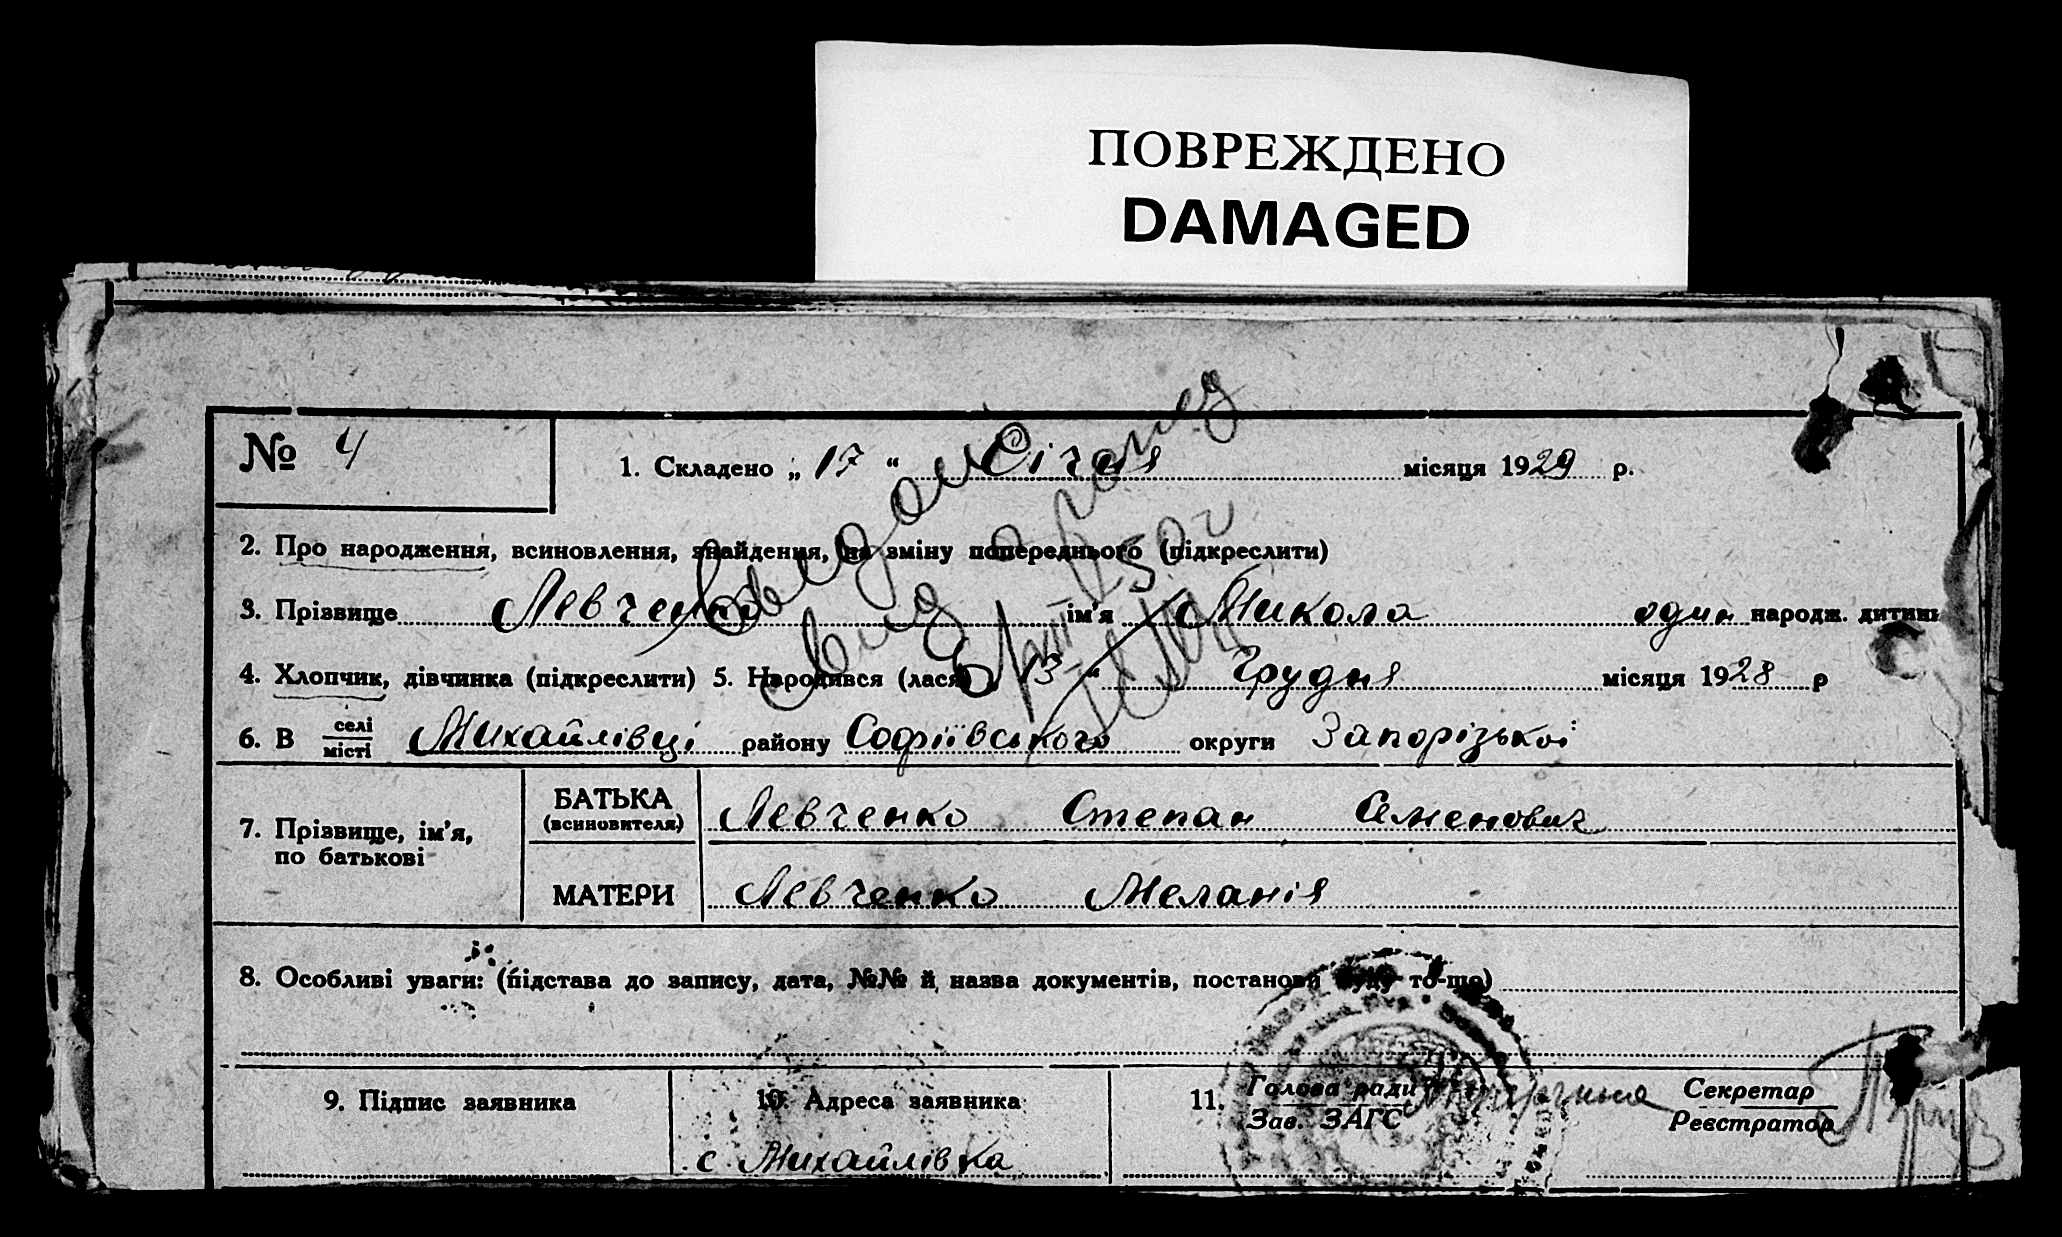 ПОВРЕЖДЕНО
DAMAGED
№ 4
1. Складено „ 17 “ Січня місяця 1929 р.
2. Про народження, всиновлення, знайдення, на зміну попереднього (підкреслити)
3. Прізвище Левченко ім'я Микола один народж. дитини
4. Хлопчик, дівчинка (підкреслити) 5. Народився (лася) 13 “ Грудня місяця 1928 р
6. В селі місті Михайлівці району Софіївського округи Запорізької
7. Прізвище, ім'я, по батькові
БАТЬКА (всиновителя) Левченко Степан Семенович
МАТЕРИ Левченко Меланія
8. Особливі уваги: (підстава до запису, дата, №№ й назва документів, постанови суду то-що)
9. Підпис заявника
10. Адреса заявника
с. Михайлівка
11. Голова ради Зав. ЗАГС
Секретар Реєстратор